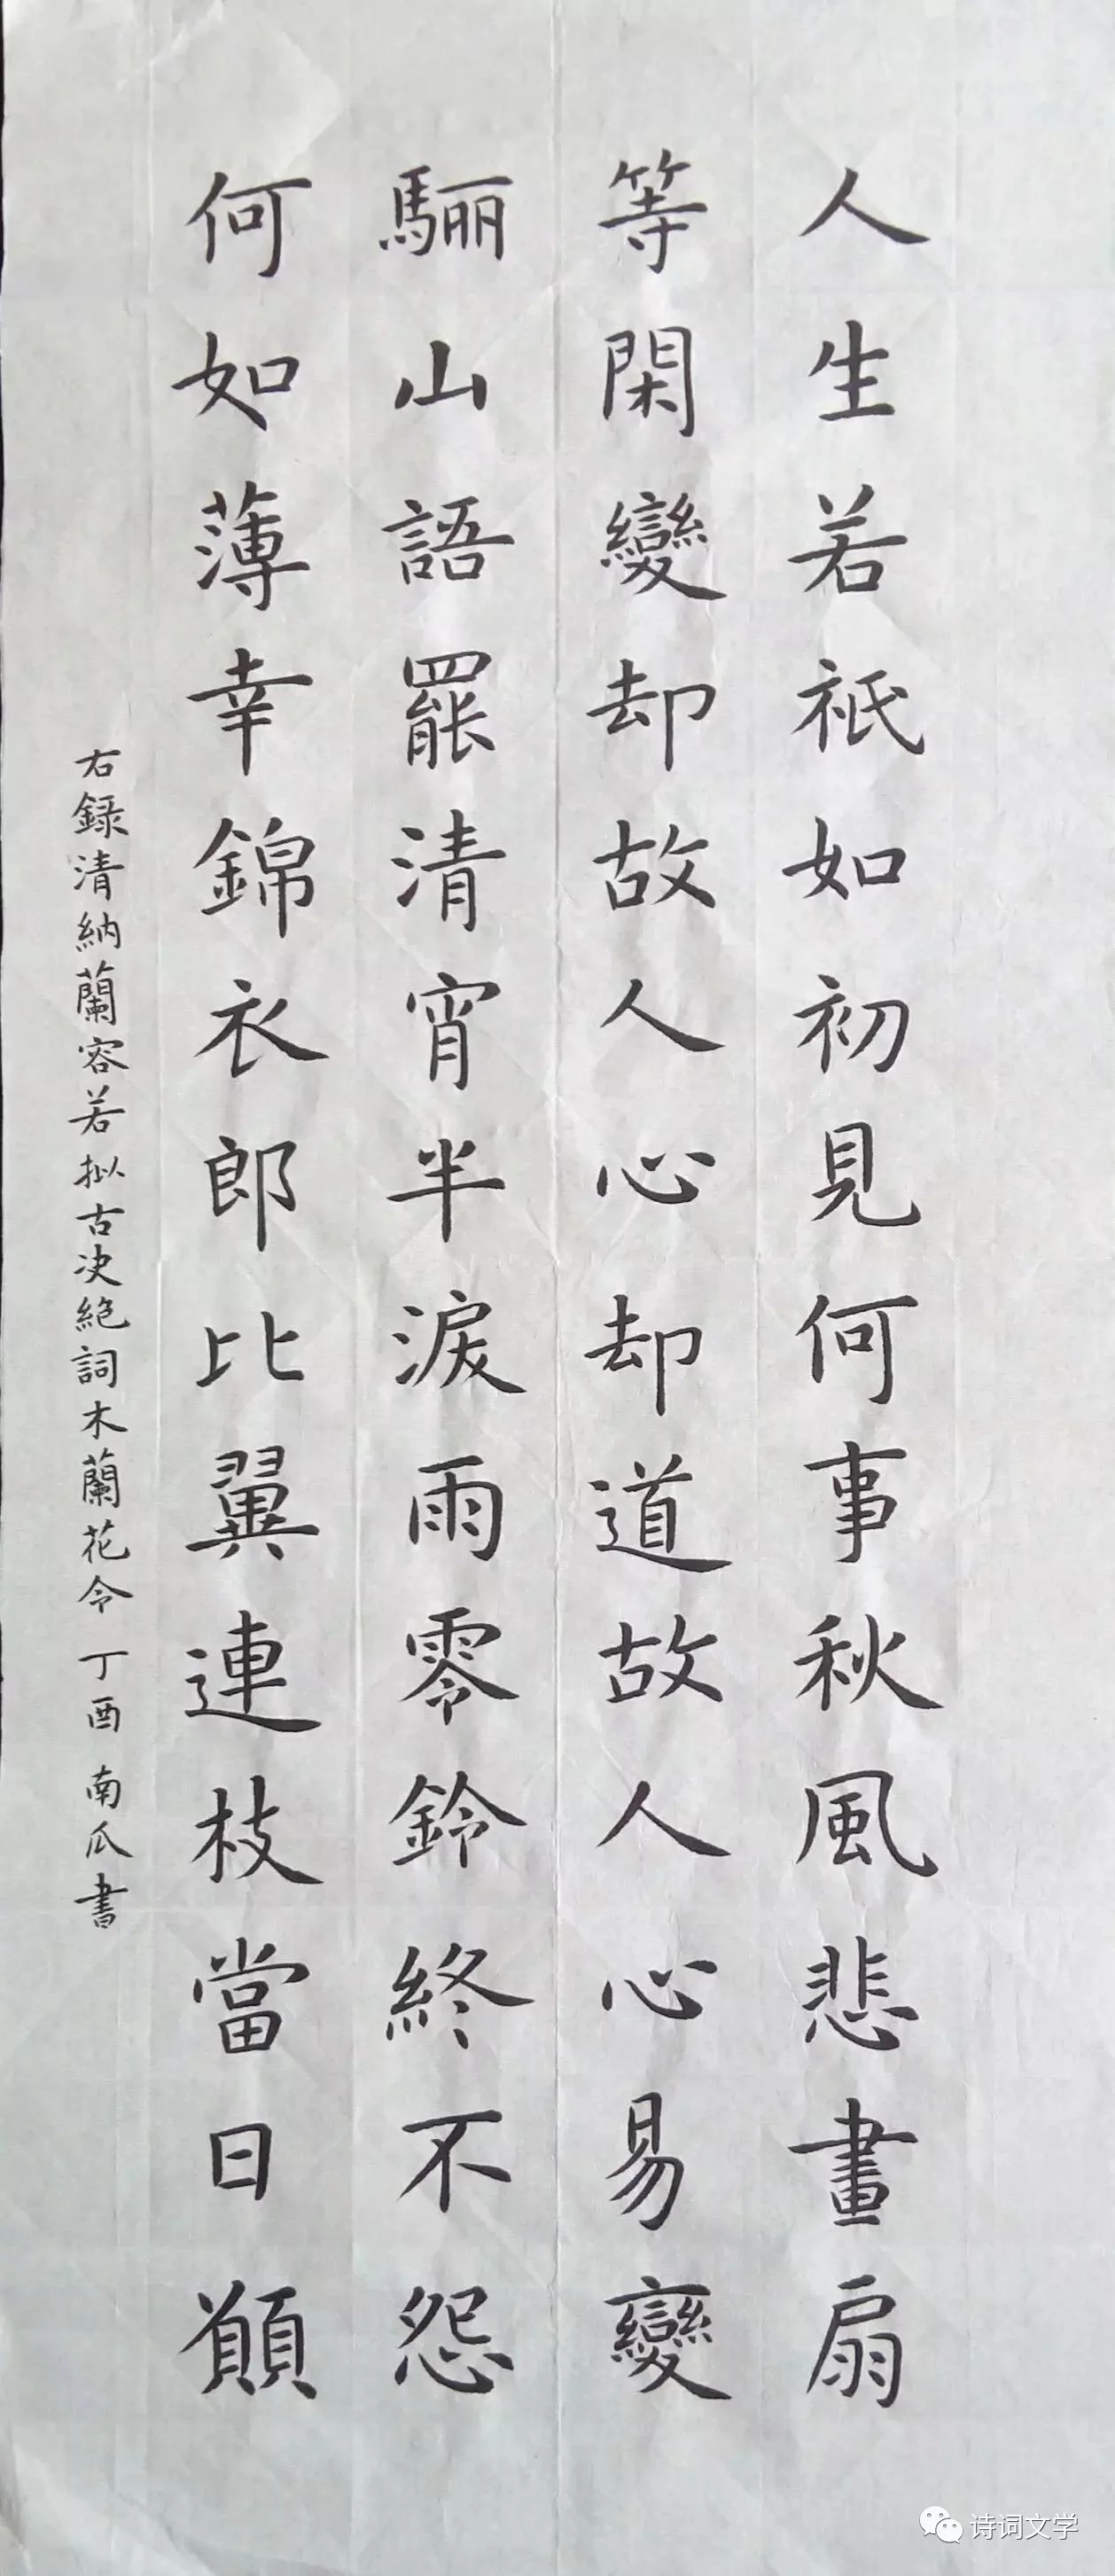 人生若祇如初見何事秋風悲畫扇
等閑變却故人心却道故人心易變
驪山語罷清宵半淚雨零鈴終不怨
何如薄幸錦衣郎比翼連枝當日願
右録清納蘭容若拟古决絶詞木蘭花令 丁酉 南瓜書
诗词文学